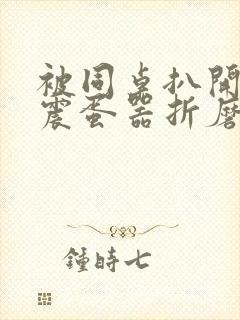 被同桌扒開
震蛋器折磨
鍾時七